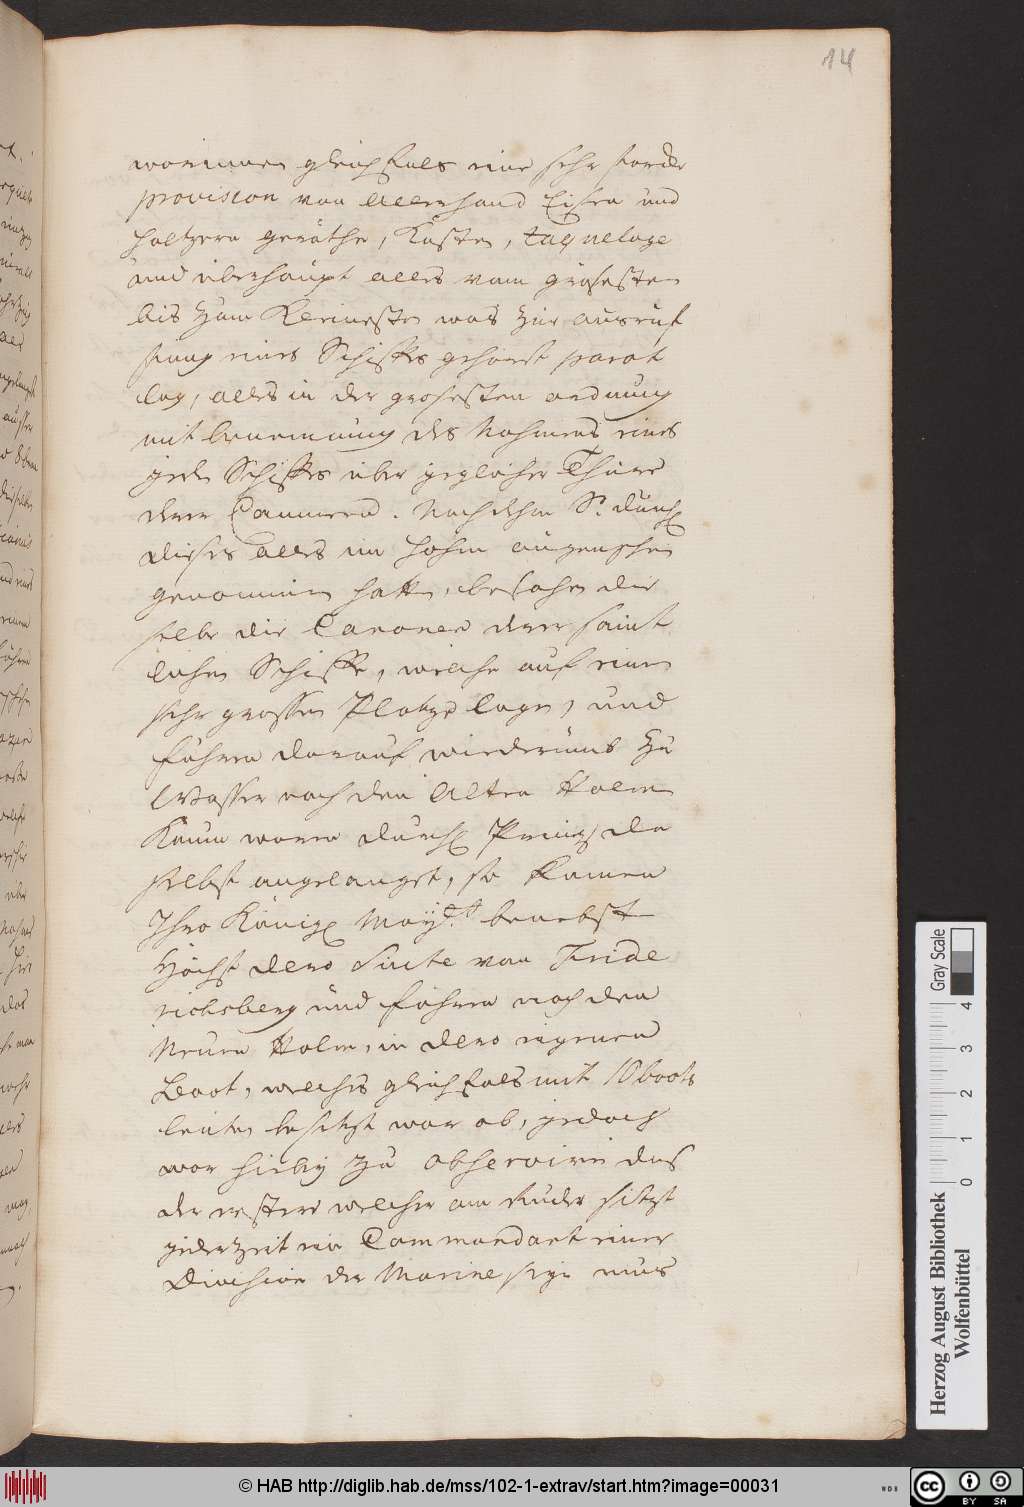 14
worinnen gleichfals eine sehr starcke
provision von allerhand Eisen und
höltzern geräthe, Kasten, taquelage
und überhaupt alles vom grösesten
bis zum Kleinesten was zur ausrüs
tung eines Schiffes gehöret parat
lag, alles in der grösesten ordnung
mit benennung des Nahmens eines
jeden Schiffes über jeglicher Thüre
derer Cammern. Nachdehm Sr. durchl
dieses alles in hohen augenschein
genommen hatten, besahen die
selbe die Canonen derer sämt
lichen Schiffe, welche auf einen
sehr grossen Platze lagen, und
fuhren darauf wiederümb zu
Wasser nach den Alten Holm
Kaum waren durchl Printz da
selbst angelanget, so kamen
Ihro Königl Mayj.tt benebst
Höchst dero Suite von Fride
richsberg und fuhren nach den
Neuen Holm, in dero eigenen
Boot, welches gleichfals mit 10 boots
leuten besetzt war ab, jedoch
war hiebey zu observiren das
der erstere welcher am Ruder sitzt
jederzeit ein Commandant einer
Division der Marine seyn mus
Herzog August Bibliothek
Wolfenbüttel
Gray Scale
0 1 2 3 4
© HAB http://diglib.hab.de/mss/102-1-extrav/start.htm?image=00031
WDB
cc BY SA